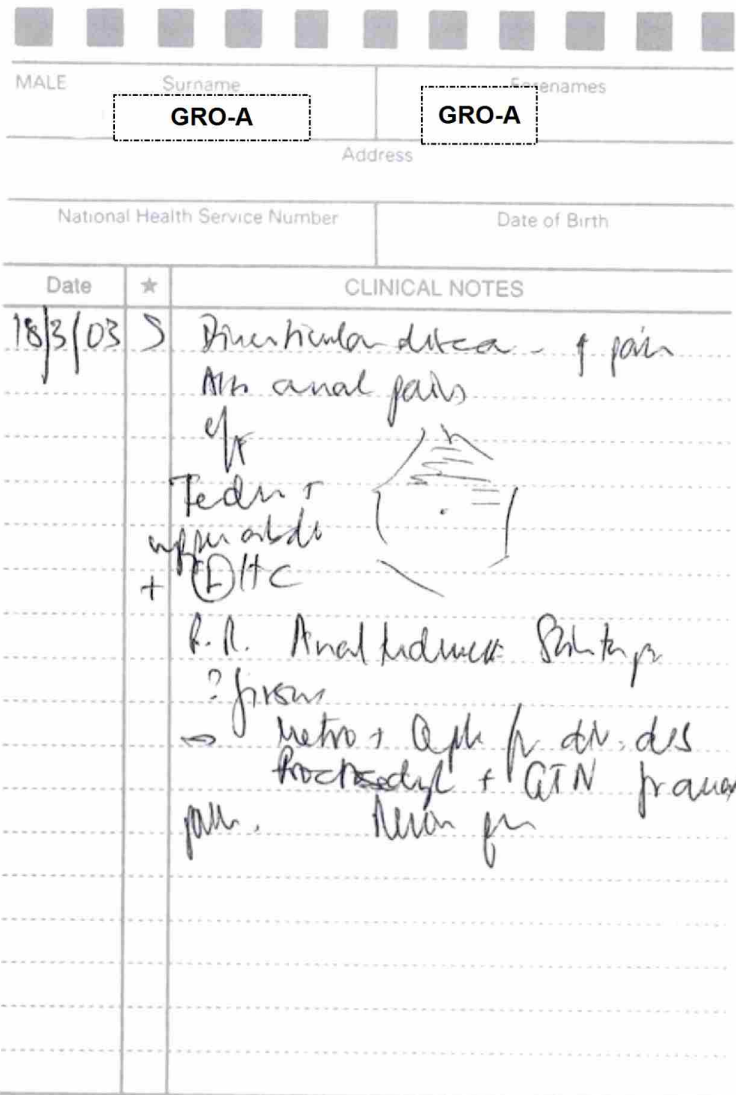 MALE Surname Forenames
GRO-A GRO-A
Address
National Health Service Number Date of Birth
Date ★ CLINICAL NOTES
18/3/03 S Diverticular disease - ↑ pain
anal pain
upper abdo
+ (L) HC
P.R. Anal tenderness
? fissure
→ Metro + for div. dis
Proctosedyl + GTN for anal
pain.